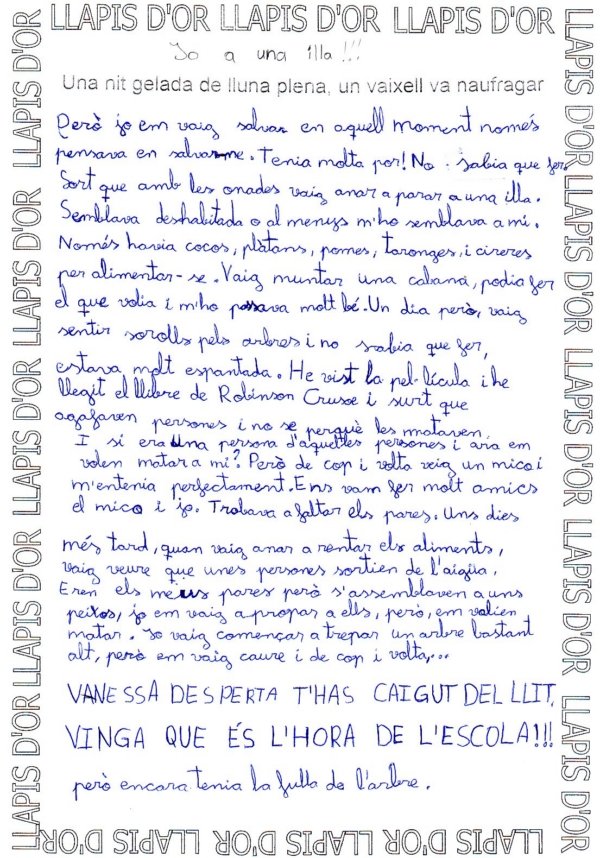 LLAPIS D'OR LLAPIS D'OR LLAPIS D'OR
Jo a una illa!!!
Una nit gelada de lluna plena, un vaixell va naufragar
Però jo em vaig salvar en aquell moment només
pensava en salvarme. Tenia molta por! No sabia que fer.
Sort que amb les onades vaig anar a parar a una illa.
Semblava deshabitada o al menys m'ho semblava a mi.
Només havia cocos, plàtans, pomes, taronges, i cireres
per alimentar-se. Vaig muntar una cabana, podia fer
el que volia i m'ho passava molt bé. Un dia però, vaig
sentir sorolls pels arbres i no sabia que fer,
estava molt espantada. He vist la pel·lícula i he
llegit el llibre de Robinson Crusoe i surt que
agafaven persones i no se perquè les mataven.
I si era una persona d'aquelles persones i ara em
volen matar a mi? Però de cop i volta veig un mico i
m'entenia perfectament. Ens vam fer molt amics
el mico i jo. Trobava a faltar els pares. Uns dies
més tard, quan vaig anar a rentar els aliments,
vaig veure que unes persones sortien de l'aigüa.
Eren els meus pares però s'assemblaven a uns
peixos, jo em vaig apropar a ells, però, em volien
matar. Jo vaig començar a trepar un arbre bastant
alt, però em vaig caure i de cop i volta,...
VANESSA DESPERTA T'HAS CAIGUT DEL LLIT,
VINGA QUE ÉS L'HORA DE L'ESCOLA!!!
però encara tenia la fulla de l'arbre.
LLAPIS D'OR LLAPIS D'OR LLAPIS D'OR LLAPIS D'OR LLAPIS D'OR
LLAPIS D'OR LLAPIS D'OR LLAPIS D'OR LLAPIS D'OR LLAPIS D'OR
LLAPIS D'OR LLAPIS D'OR LLAPIS D'OR